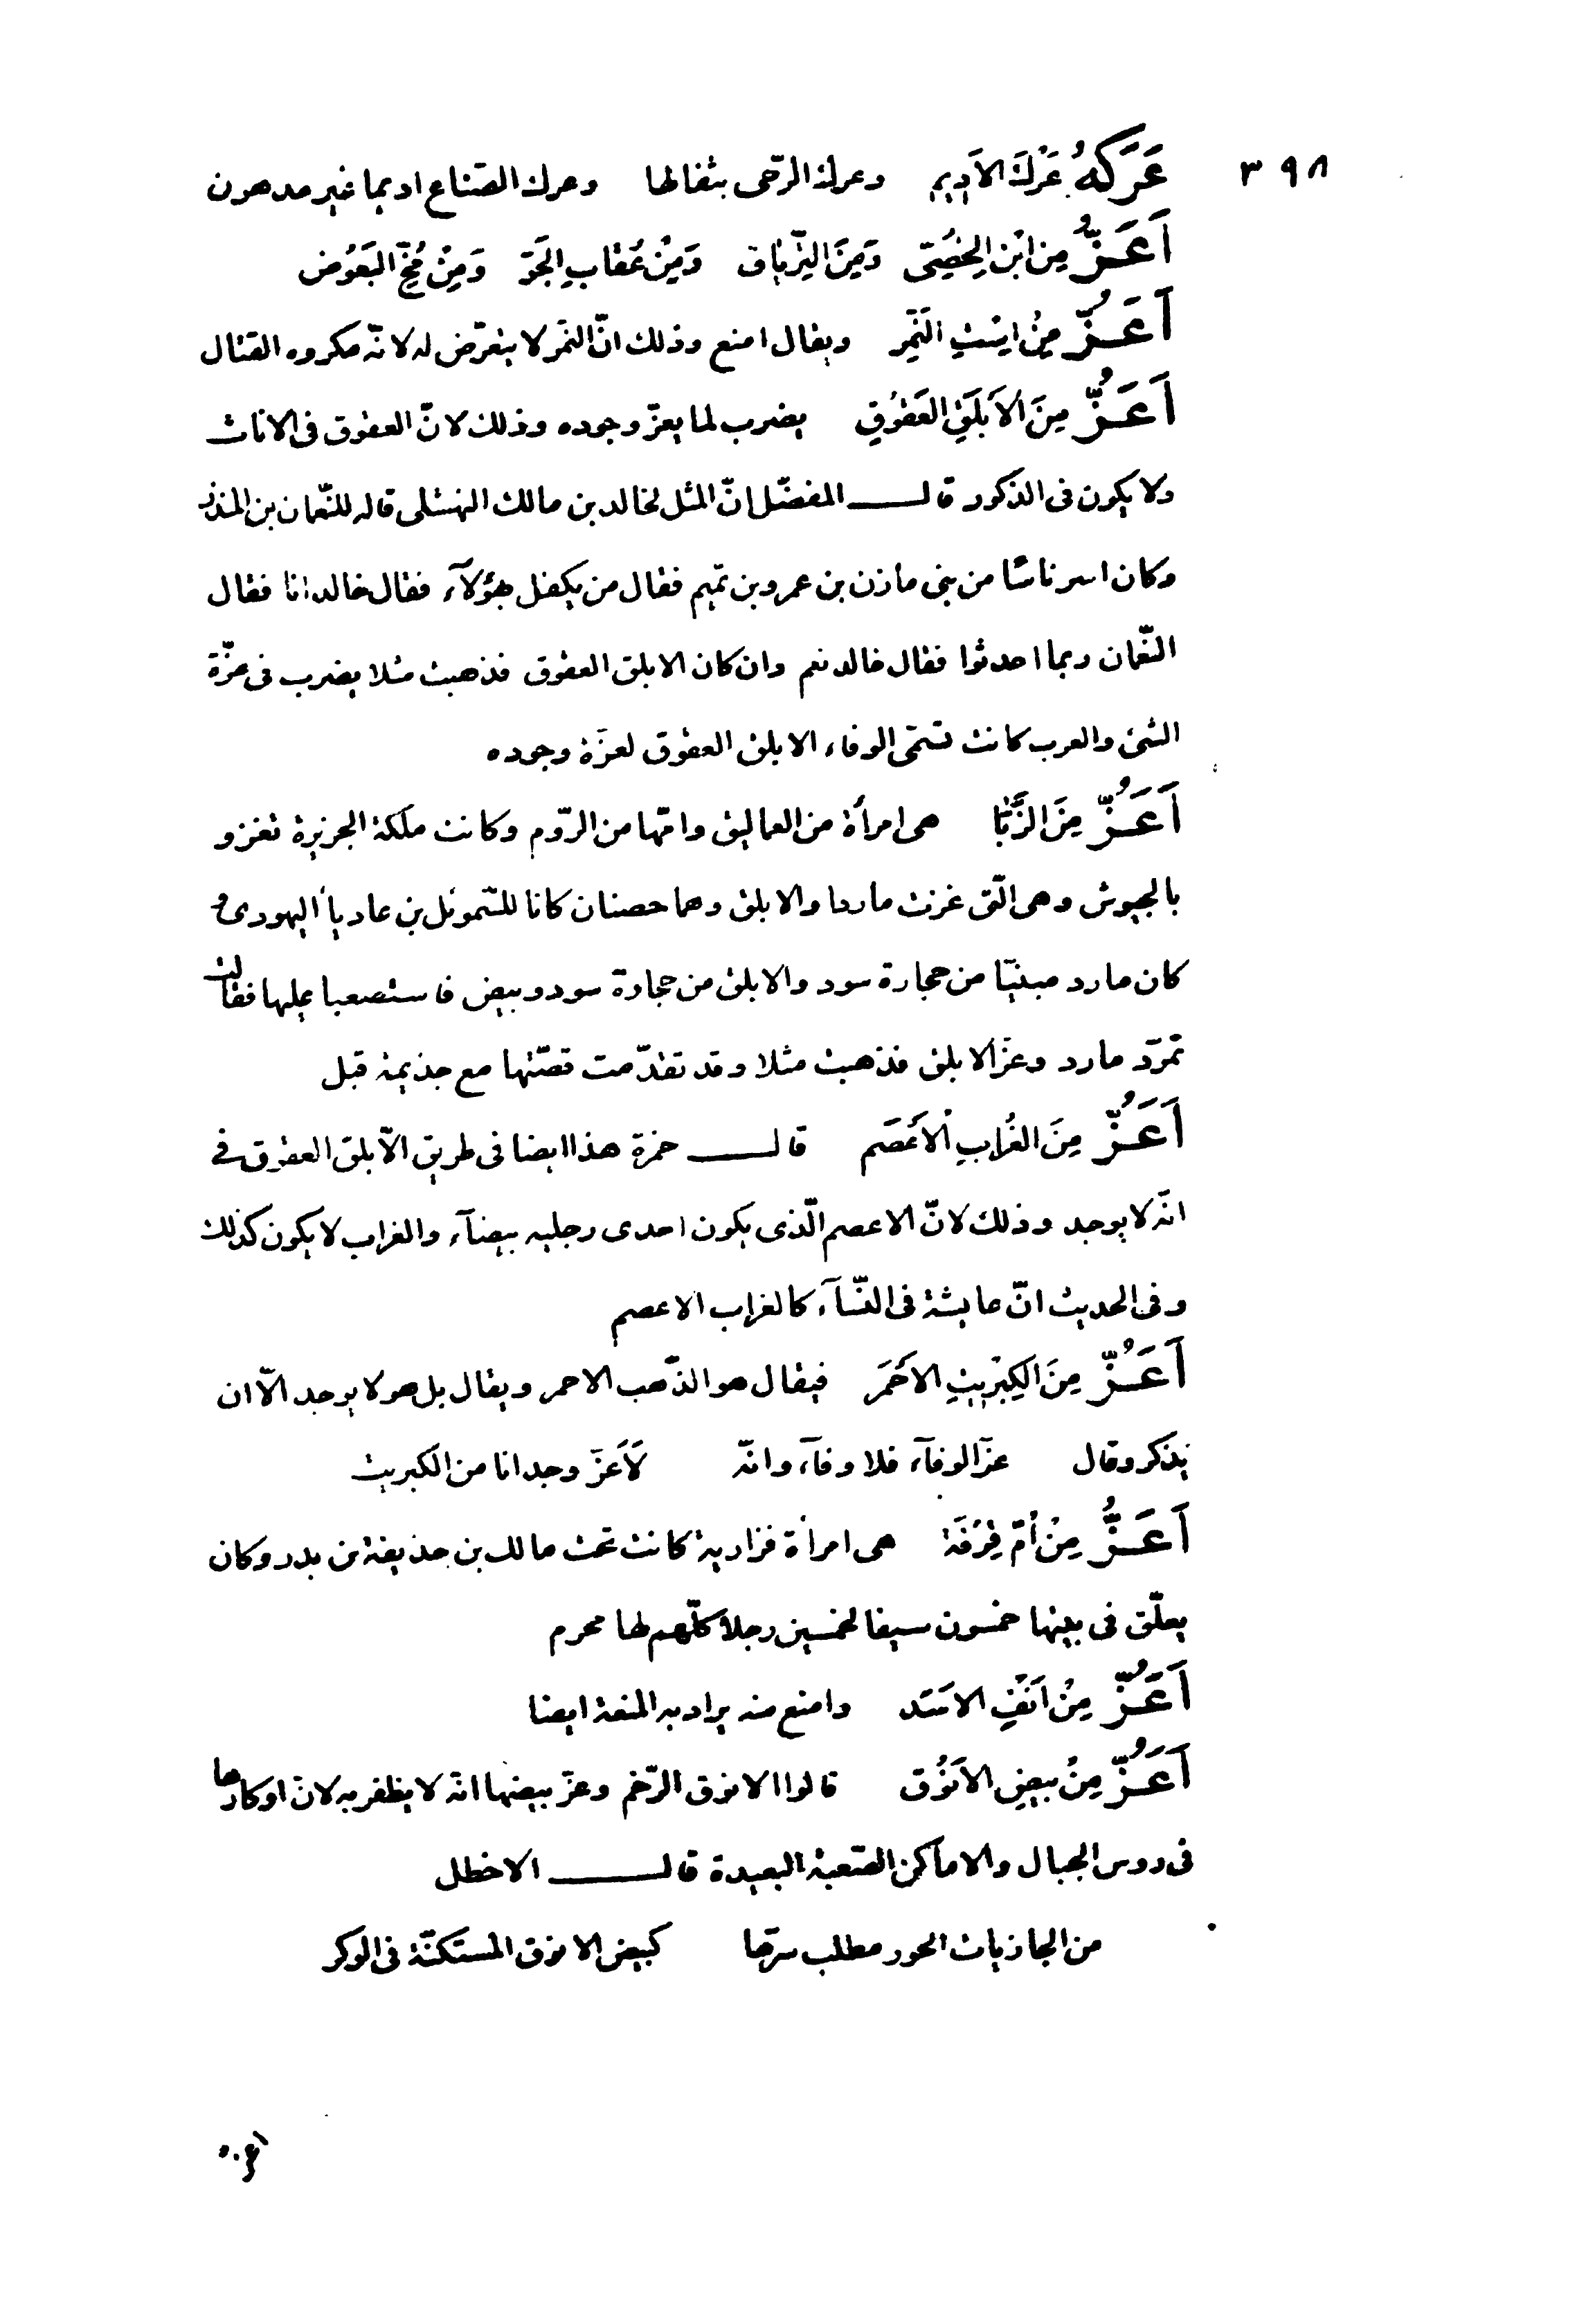 ٣٩٨
عَرَكَهُ عَرْكَ الاَدِيمِ وعرك الرّحى بثفالها وعرك الصّناع اديما غير مدهون
اَعَزُّ مِنِ ابْنِ الخِصِيّ وَمِنَ التِّرْيَاقِ وَمِنْ عُقَابِ الجَوّ وَمِنْ مُخّ البَعُوض
اَعَزُّ مِنْ اِسْتِ النَّمِر ويقال امنع وذلك انّ النمر لا يتعرّض له لانّه مكروه القتال
اَعَزُّ مِنَ الاَبلَقِ العَقُوقِ يضرب لما يعزّ وجوده وذلك لانّ العقوق فى الاناث
ولا يكون فى الذكور قال المفضّل انّ المثل لخالد بن مالك النهشلى قاله للنّعمان بن المنذر
وكان اسر ناسًا من بنى مازن بن عمرو بن تميم فقال من يكفل بهؤلآء فقال خالد انا فقال
النّعمان وبما احدثوا فقال خالد نعم وان كان الابلق العقوق فذهبت مثلا يضرب فى عزّة
الشئ والعرب كانت تسمّى الوفاء الابلق العقوق لعزّة وجوده
اَعَزُّ مِنَ الزَّبّا هى امرأة من العماليق وامّها من الرّوم وكانت ملكة الجزيرة تغزو
بالجيوش وهى الّتى غزت ماردا والابلق وهما حصنان كانا للسّموئل بن عاديأ اليهودى و
كان مارد مبنيّا من حجارة سود والابلق من حجارة سود وبيض فاستصعبا عليها فقالت
تمرّد مارد وعزّ الابلق فذهبت مثلا وقد تقدّمت قصّتها مع جذيمة قبل
اَعَزُّ مِنَ الغُرابِ الاَعْصَم قال حمزة هذا ايضا فى طريق الابلق العقوق فى
انّه لا يوجد وذلك لانّ الاعصم الّذى يكون احدى رجليه بيضآء والغراب لا يكون كذلك
وفى الحديث انّ عايشة فى النّسآء كالغراب الاعصم
اَعَزُّ مِنَ الكِبْرِيتِ الاَحْمَر فيقال هو الذّهب الاحمر ويقال بل هو لا يوجد الاّ ان
يذكر وقال عزّ الوفآء فلا وفآء وانّه لَاَعزّ وجدانا من الكبريت
اَعَزُّ مِنْ اُمّ قِرْفَة هى امرأة فزارية كانت تحت مالك بن حذيفة بن بدر وكان
يعلّق فى بيتها خمسون سيفا لخمسين رجلا كلّهم لها محرم
اَعَزُّ مِنْ اَنْفِ الاَسَد وامنع منه يراد به المنعة ايضا
اَعَزُّ مِنْ بيضِ الاَنُوْق قالوا الانوق الرّخم وعزّ بيضها انّه لا يظفر به لانّ اوكارها
فى روس الجبال والاماكن الصّعبة البعيدة قال الاخطل
من الجاذيات الحور مطلب سرّها كبيض الانوق المستكنّة فى الوكر